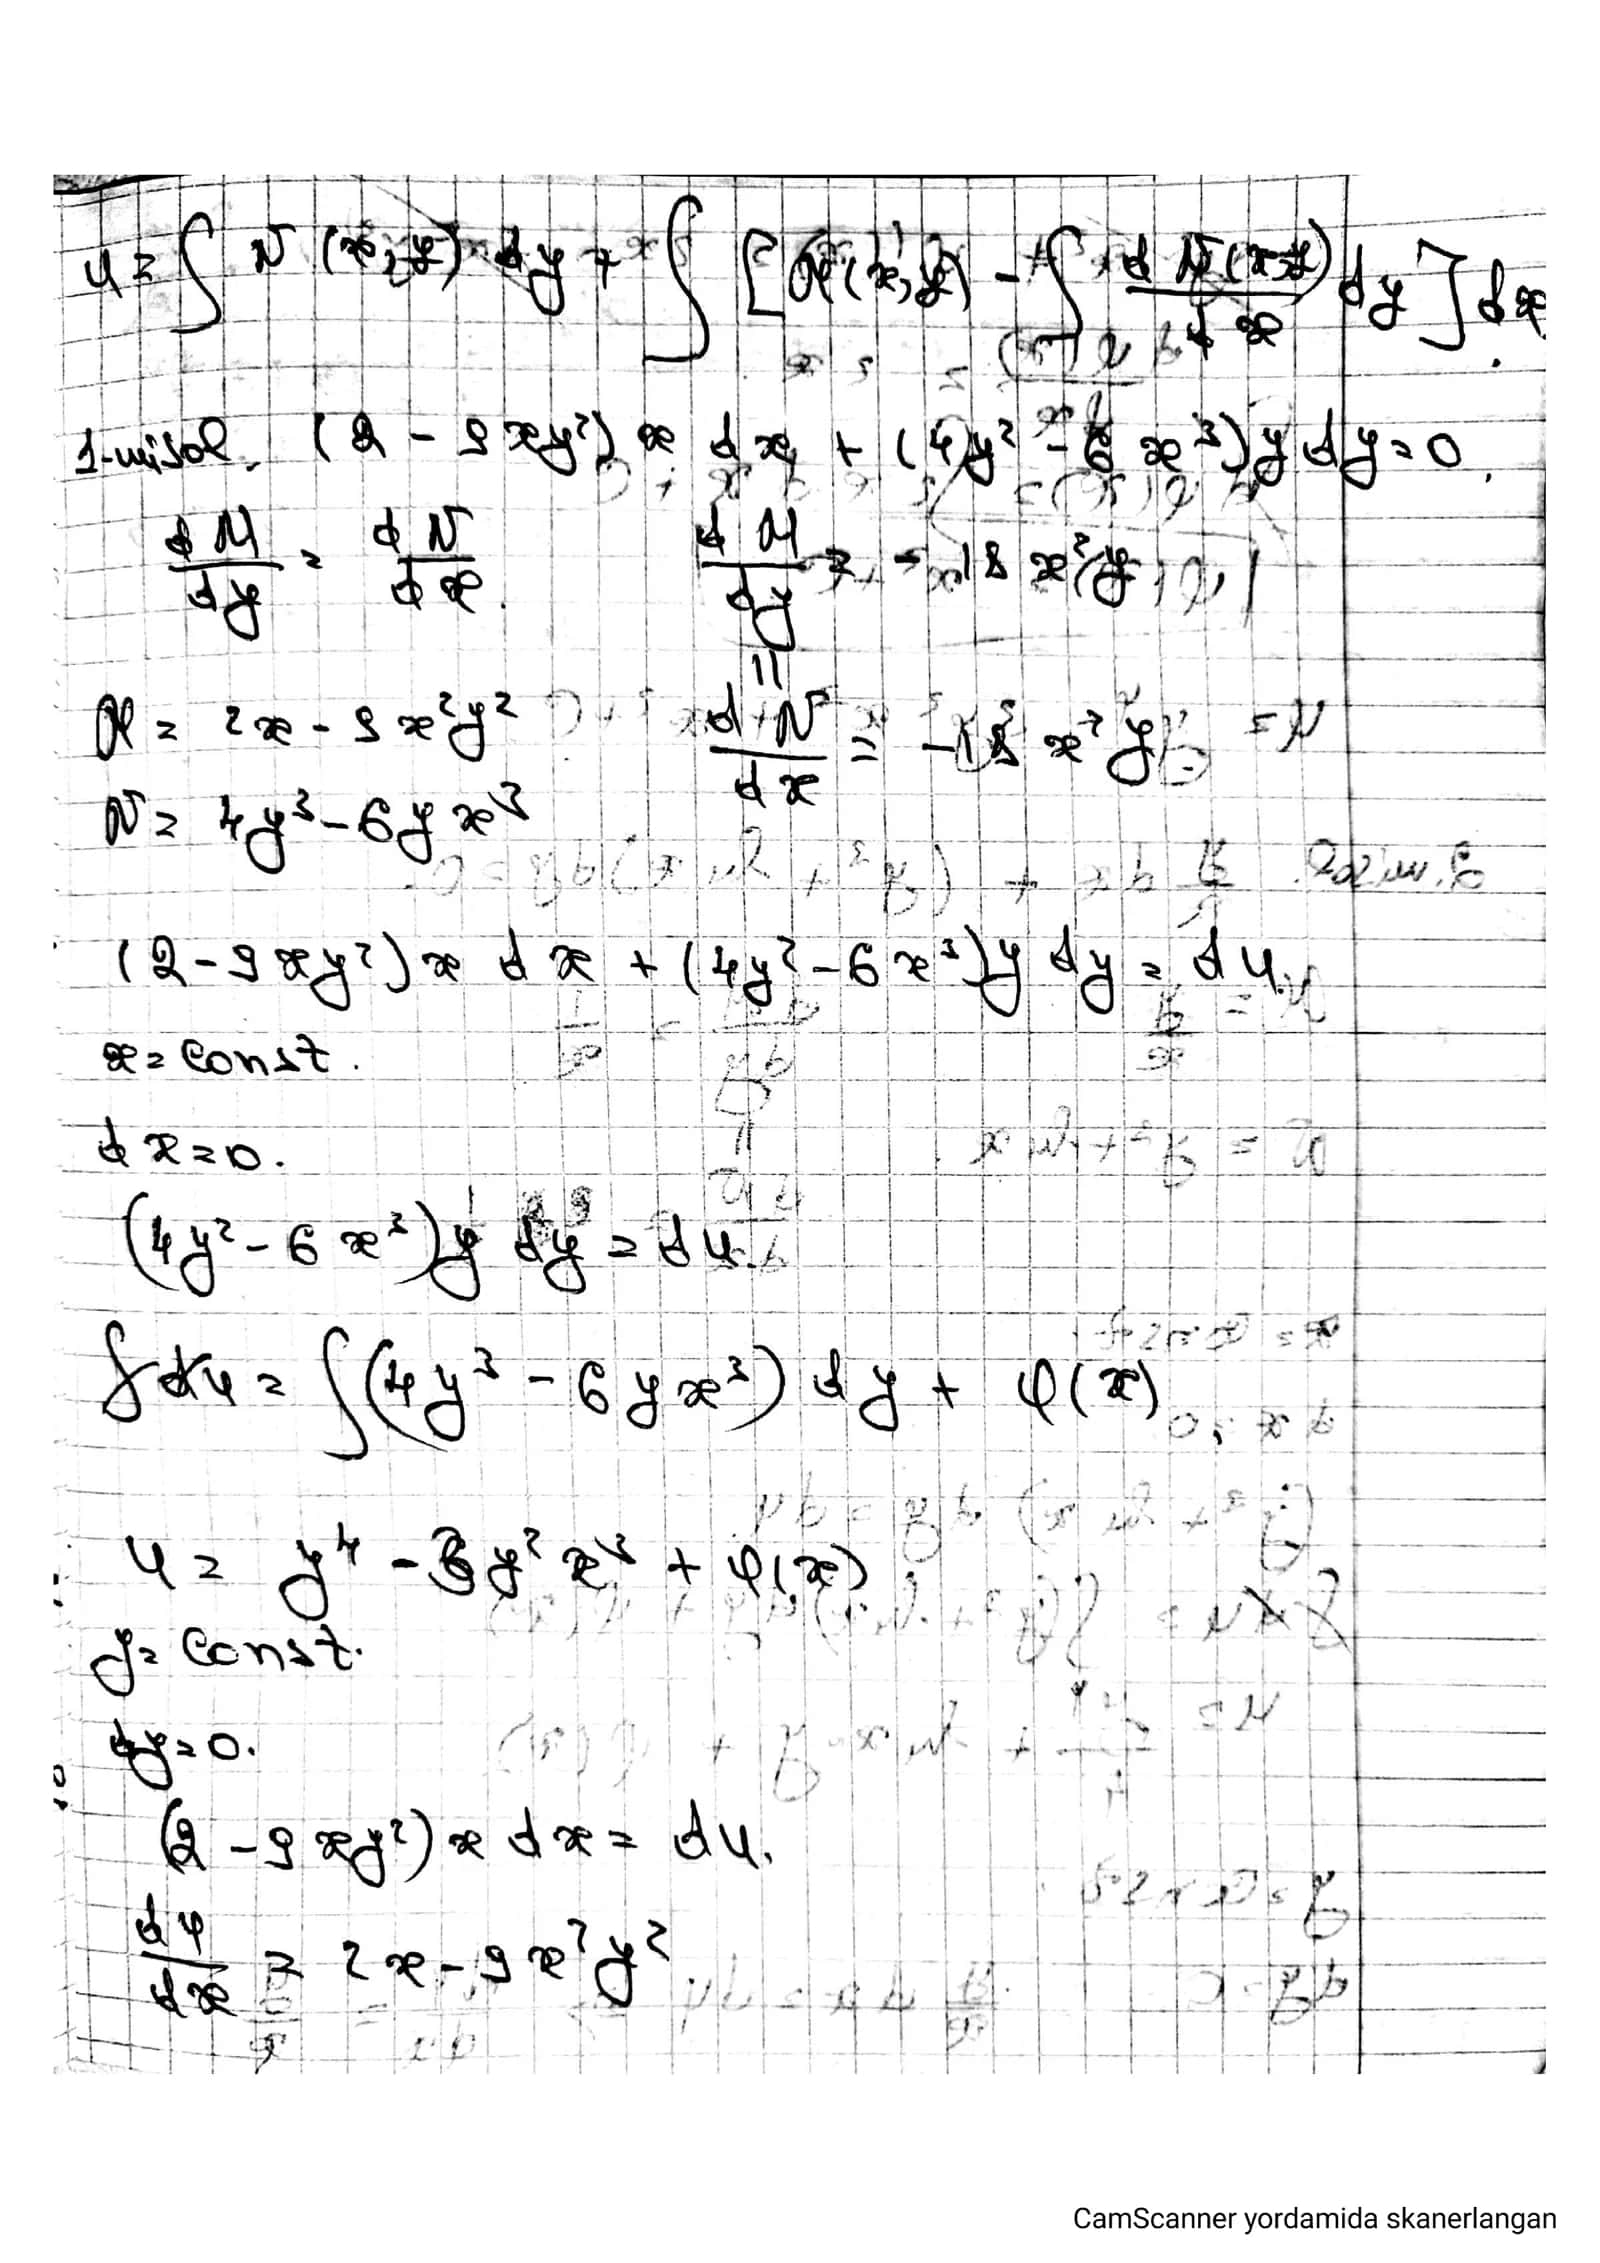 u = ∫ N(x,y) dy + ∫ [M(x,y) - ∫ dN(x,y)/dx dy] dx.
1-misol. (2 - 9xy²)x dx + (4y² - 6x³)y dy = 0.
dM/dy = dN/dx. dM/dy = -18x²y
||
M = 2x - 9x²y² dN/dx = -18x²y
N = 4y³ - 6yx³
(2 - 9xy²)x dx + (4y² - 6x³)y dy = du.
x = const.
dx = 0.
(4y² - 6x³)y dy = du
∫du = ∫(4y³ - 6yx³) dy + φ(x)
u = y⁴ - 3y²x³ + φ(x)
y = const.
dy = 0.
(2 - 9xy²)x dx = du.
dφ/dx = 2x - 9x²y²
CamScanner yordamida skanerlangan